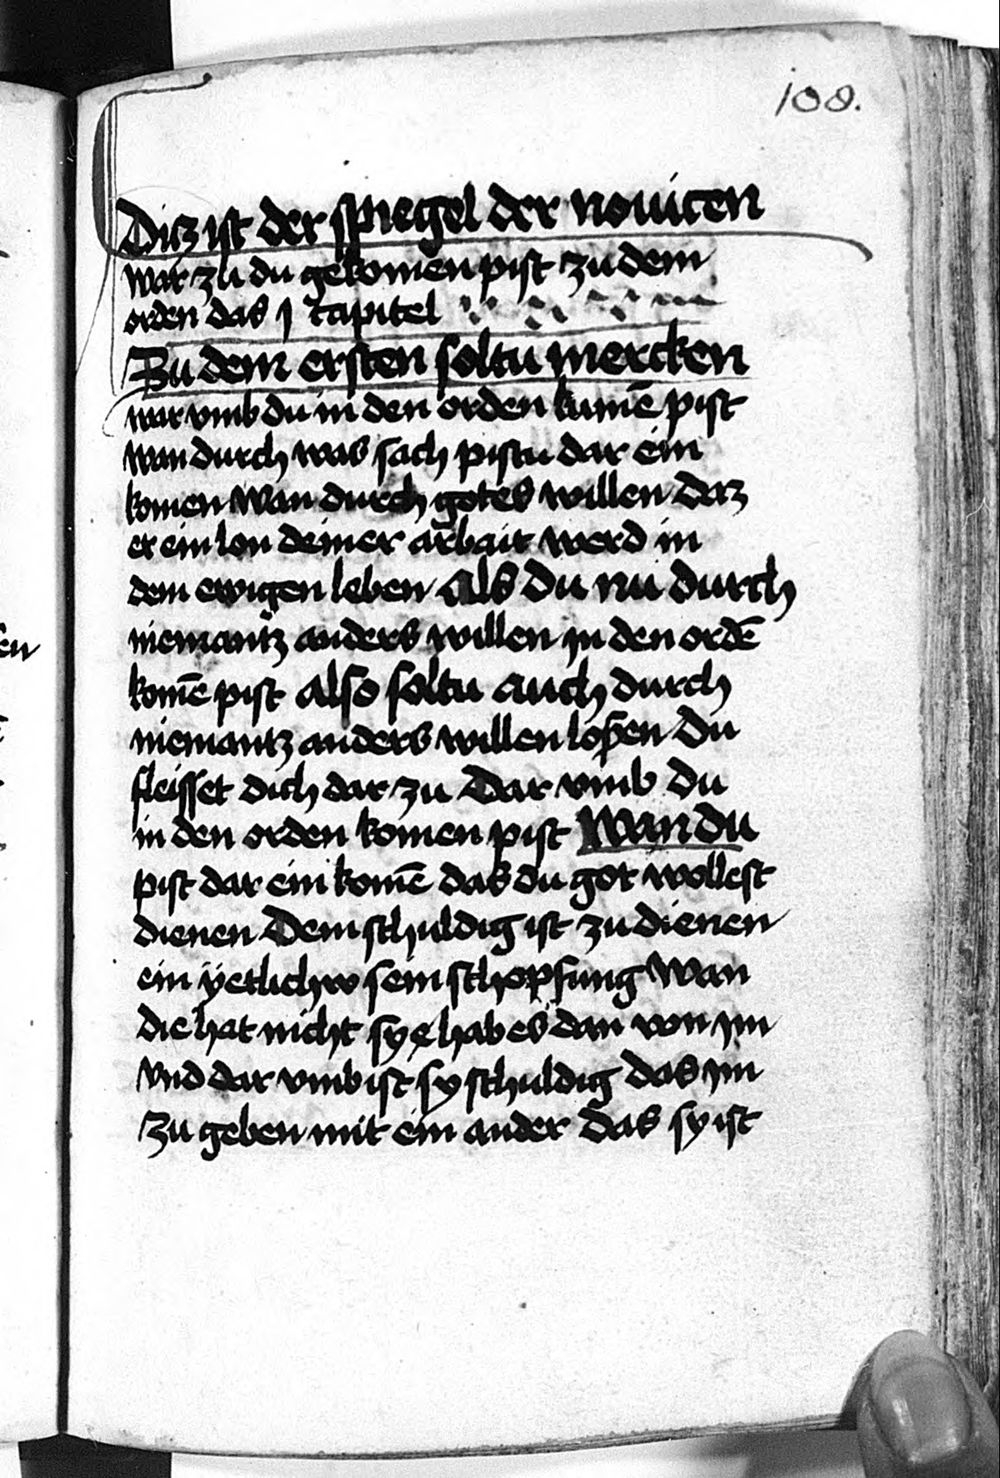 108.
Ditz ist der spiegel der nouicen
war zu du gekomen pist zu dem
orden das j capitel
Zu dem ersten soltu mercken
war vmb du in den orden kumē pist
wan durch was sach pistu dar ein
komen Wan durch gotes willen Daz
er ein lon deiner arbait werd in
dem ewigen leben Als Du nu durch
niemantz anders willen in den ordē
komē pist also soltu auch durch
niemantz anders willen loßen Du
fleisset dich dar zu Dar vmb Du
in den orden komen pist Wan du
pist dar ein komē das du got wollest
dienen Dem schuldig ist zu dienen
ein yetlichw sein schopfung Wan
Die hat nicht sye hab es dan von im
Vnd dar vmb ist sy schuldig Das im
Zu geben mit ein ander Das sy ist